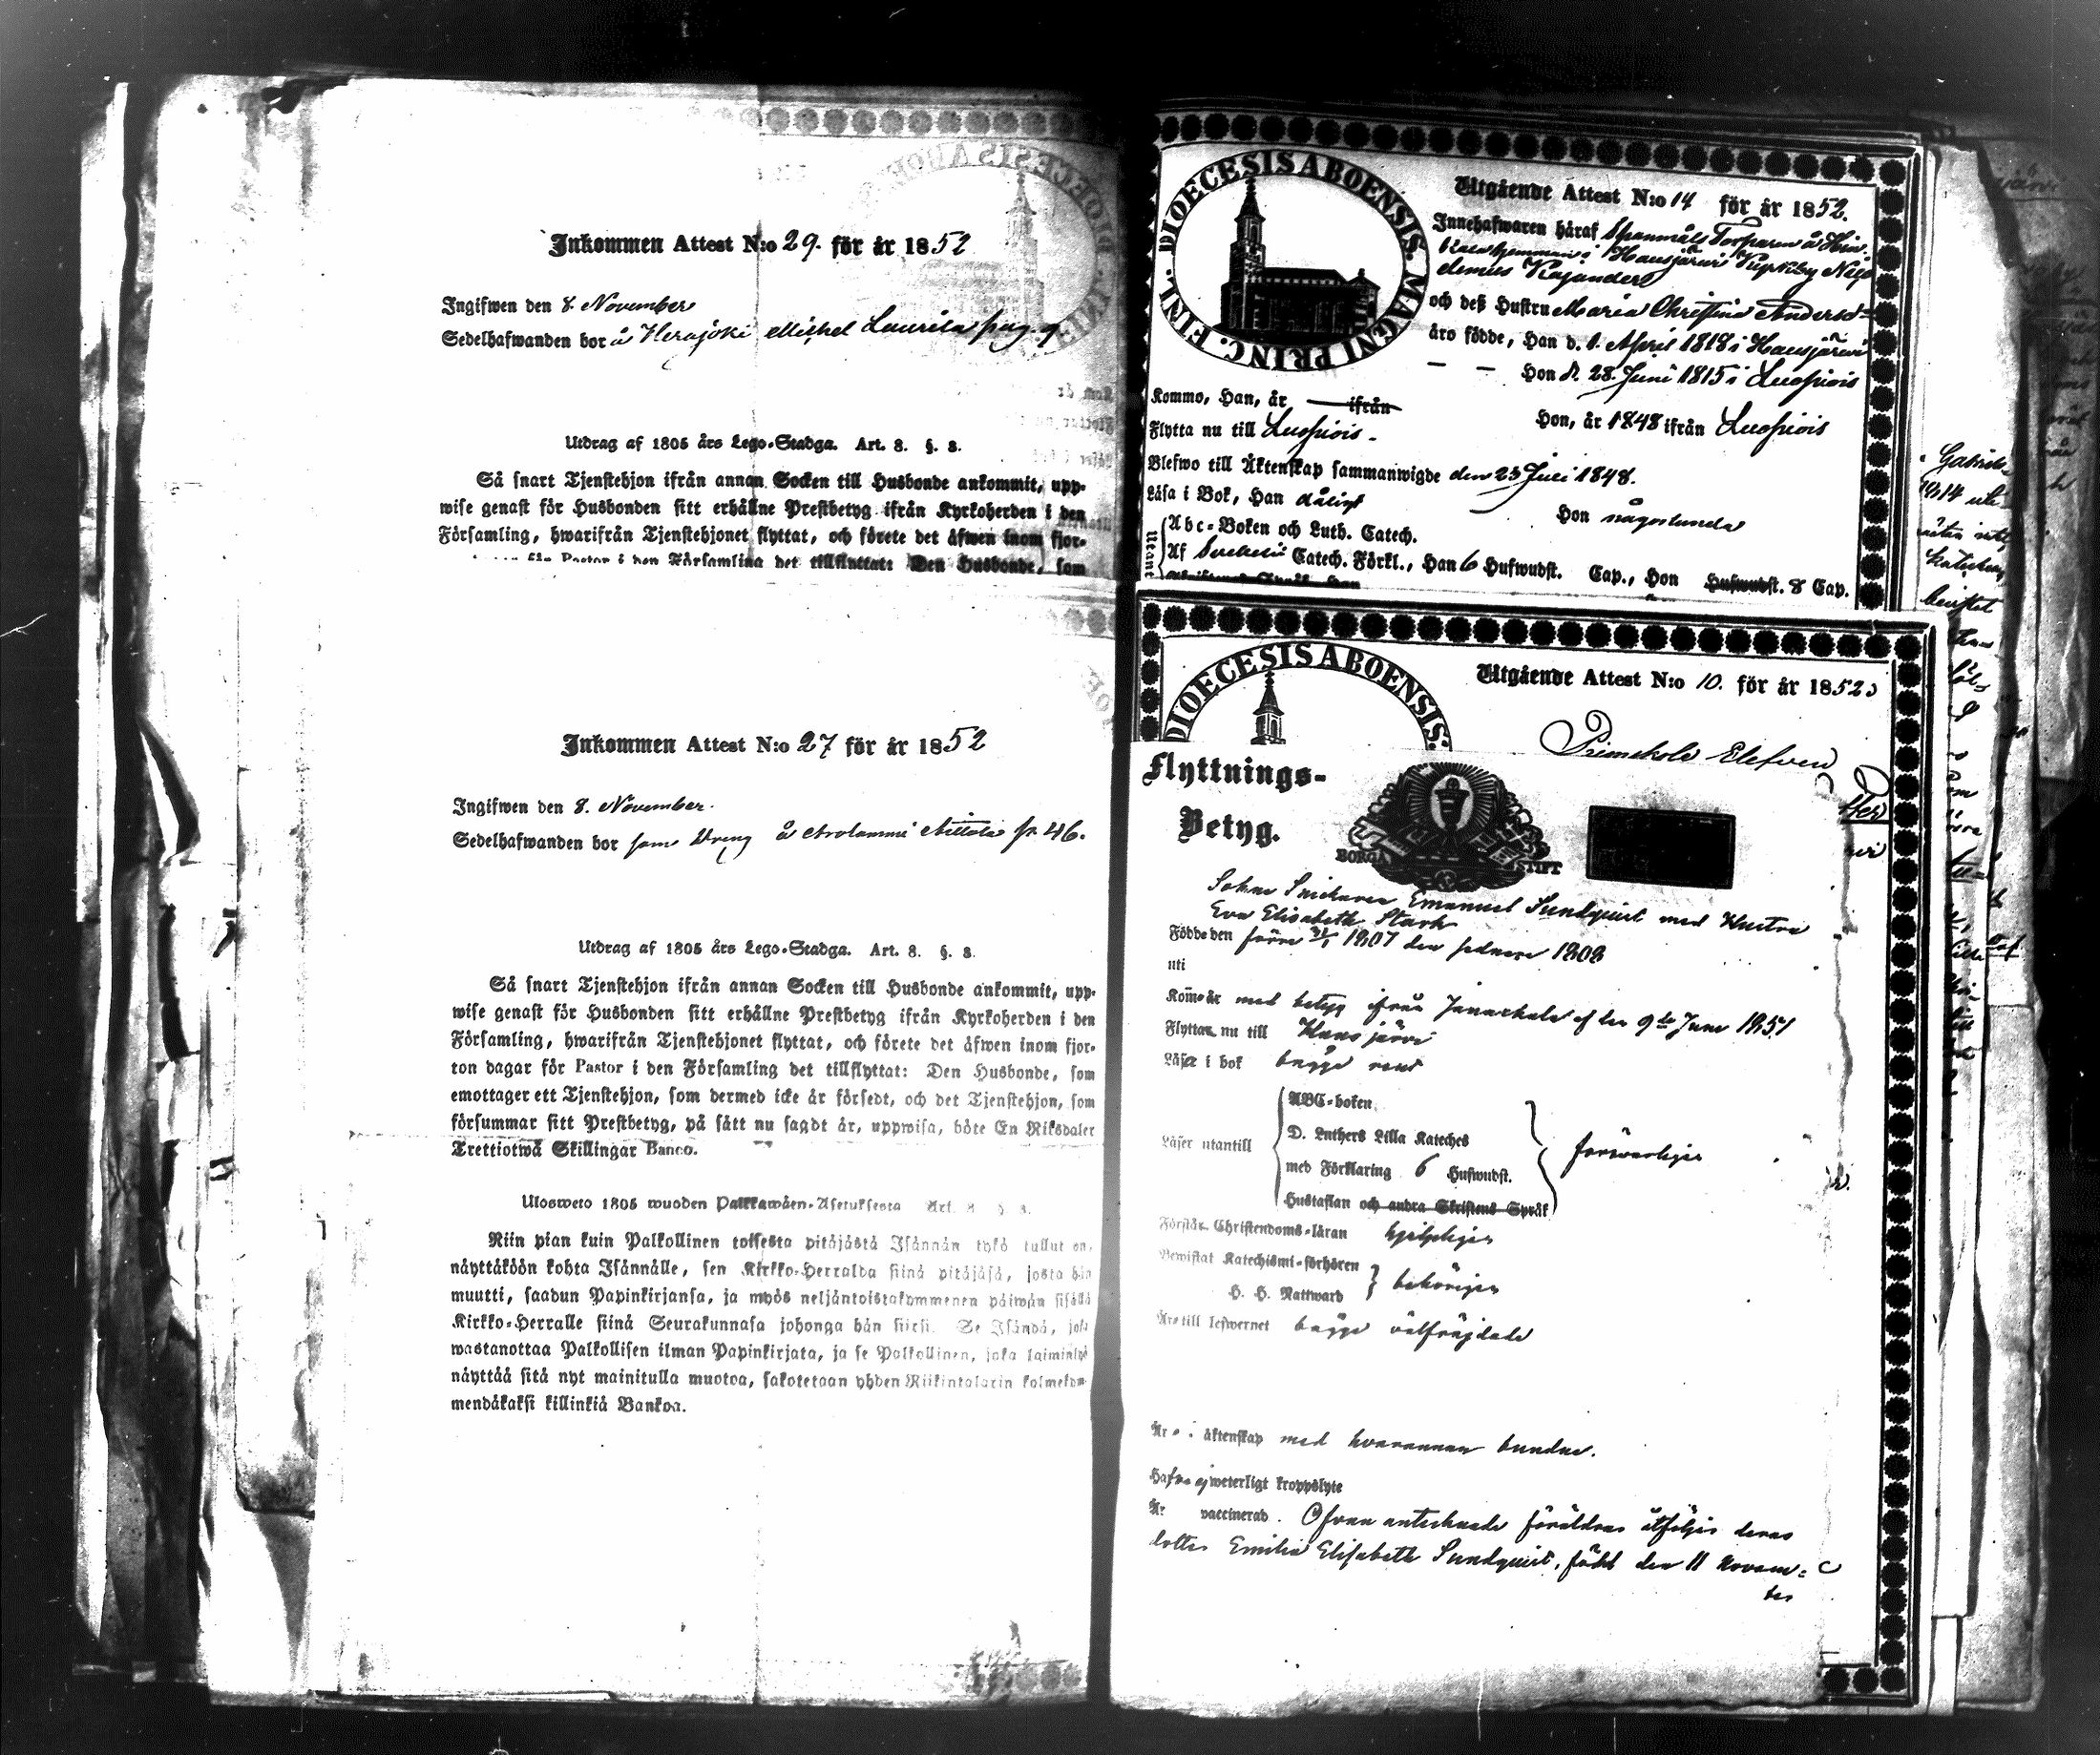 Inkommen Attest N:o 29. för år 1852
Ingifwen den 8 November
Sedelhafwanden bor å Herajoki Michel Laurila pag. 9.
Utdrag af 1805 års Lego-Stadga. Art. 8. §. 8.
Så snart Tjenstehjon ifrån annan Socken till Husbonde ankommit, upp-
wise genast för Husbonden sitt erhållne Prestbetyg ifrån Kyrkoherden i den
Församling, hwarifrån Tjenstehjonet flyttat, och förete det äfwen inom fjor-
för Pastor i den Församling det tillflyttat: Den Husbonde, som
Inkommen Attest N:o 27 för år 1852
Ingifwen den 8. November.
Sedelhafwanden bor som Dreng å Arolammi p. 46.
Utdrag af 1805 års Lego-Stadga. Art. 8. §. 8.
Så snart Tjenstehjon ifrån annan Socken till Husbonde ankommit, upp-
wise genast för Husbonden sitt erhållne Prestbetyg ifrån Kyrkoherden i den
Församling, hwarifrån Tjenstehjonet flyttat, och förete det äfwen inom fjor-
ton dagar för Pastor i den Församling det tillflyttat: Den Husbonde, som
emottager ett Tjenstehjon, som dermed icke är försedt, och det Tjenstehjon, som
försummar sitt Prestbetyg, på sätt nu sagdt är, uppwisa, böte En Riksdaler
Trettiotwå Skillingar Banco.
Ulosweto 1805 wuoden Palkkawäen-Asetuksesta Art. 8 §. 8.
Niin pian kuin Palkollinen toisesta pitäjästä Isännän tykö tullut on,
näyttäköön kohta Isännälle, sen Kirkko-Herralda siinä pitäjäsä, josta hän
muutti, saadun Papinkirjansa, ja myös neljäntoistakymmenen päiwän sisällä
Kirkko-Herralle siinä Seurakunnasa johonga hän siirsi. Se Isändä, joka
wastanottaa Palkollisen ilman Papinkirjata, ja se Palkollinen, joka laiminlyö
näyttää sitä nyt mainitulla muotoa, sakotetaan yhden Riikintalarin kolmekym-
mendäkaksi killinkiä Bankoa.
DIOECESIS ABOENSIS. MAGNI PRINC. FINL.
Utgående Attest N:o 14 för år 1852.
Innehafwaren häraf Spanmåls Torparen å
hemman i Hausjärvi
Kajander
och deß Hustru Maria Christina Andersd=
äro födde, Han d. 1. April 1818 i Hausjärvi
Hon d. 28. Juni 1815 i Luopiois
Kommo, Han, år ifrån
Hon, år 1848 ifrån Luopiois
Flytta nu till Luopiois.
Blefwo till Äktenskap sammanwigde den 23 Juli 1848.
Läsa i Bok, Han dåligt
Hon någorlunda
Abc-Boken och Luth. Catech.
Af Svebelii Catech. Förkl., Han 6 Hufwudst. Cap., Hon Hufwudst. 8 Cap.
DIOECESIS ABOENSIS.
Utgående Attest N:o 10. för år 1852
Flyttnings-
Betyg.
BORGÅ STIFT
Snickaren Emanuel Sundquist med Hustru
Eva Elisabeth Stark
Födde den förre 31/1 1807 den sednare 1808
uti
Kom̄o år med betyg ifrån Janackala af den 9de Juni 1851
Flyttar nu till Hausjärvi
Läser i bok begge rent
Läser utantill
ABC-boken
D. Luthers Lilla Kateches
med Förklaring 6 Hufwudst.
Hustaflan och andra Skriftens Språk
försvarligen
Förstår Christendoms-läran hjelpligen
Bewistat Katechismi-förhören
H. H. Nattward
behörigen
Äro till lefwernet begge välfräjdade
Äro i äktenskap med hvarannan bundne.
Hafva ej weterligt kroppslyte
Är vaccinerad. Ofvan antecknade föräldrar åtföljer deras
dotter Emilia Elisabeth Sundquist, född den 11 Novem=
ber